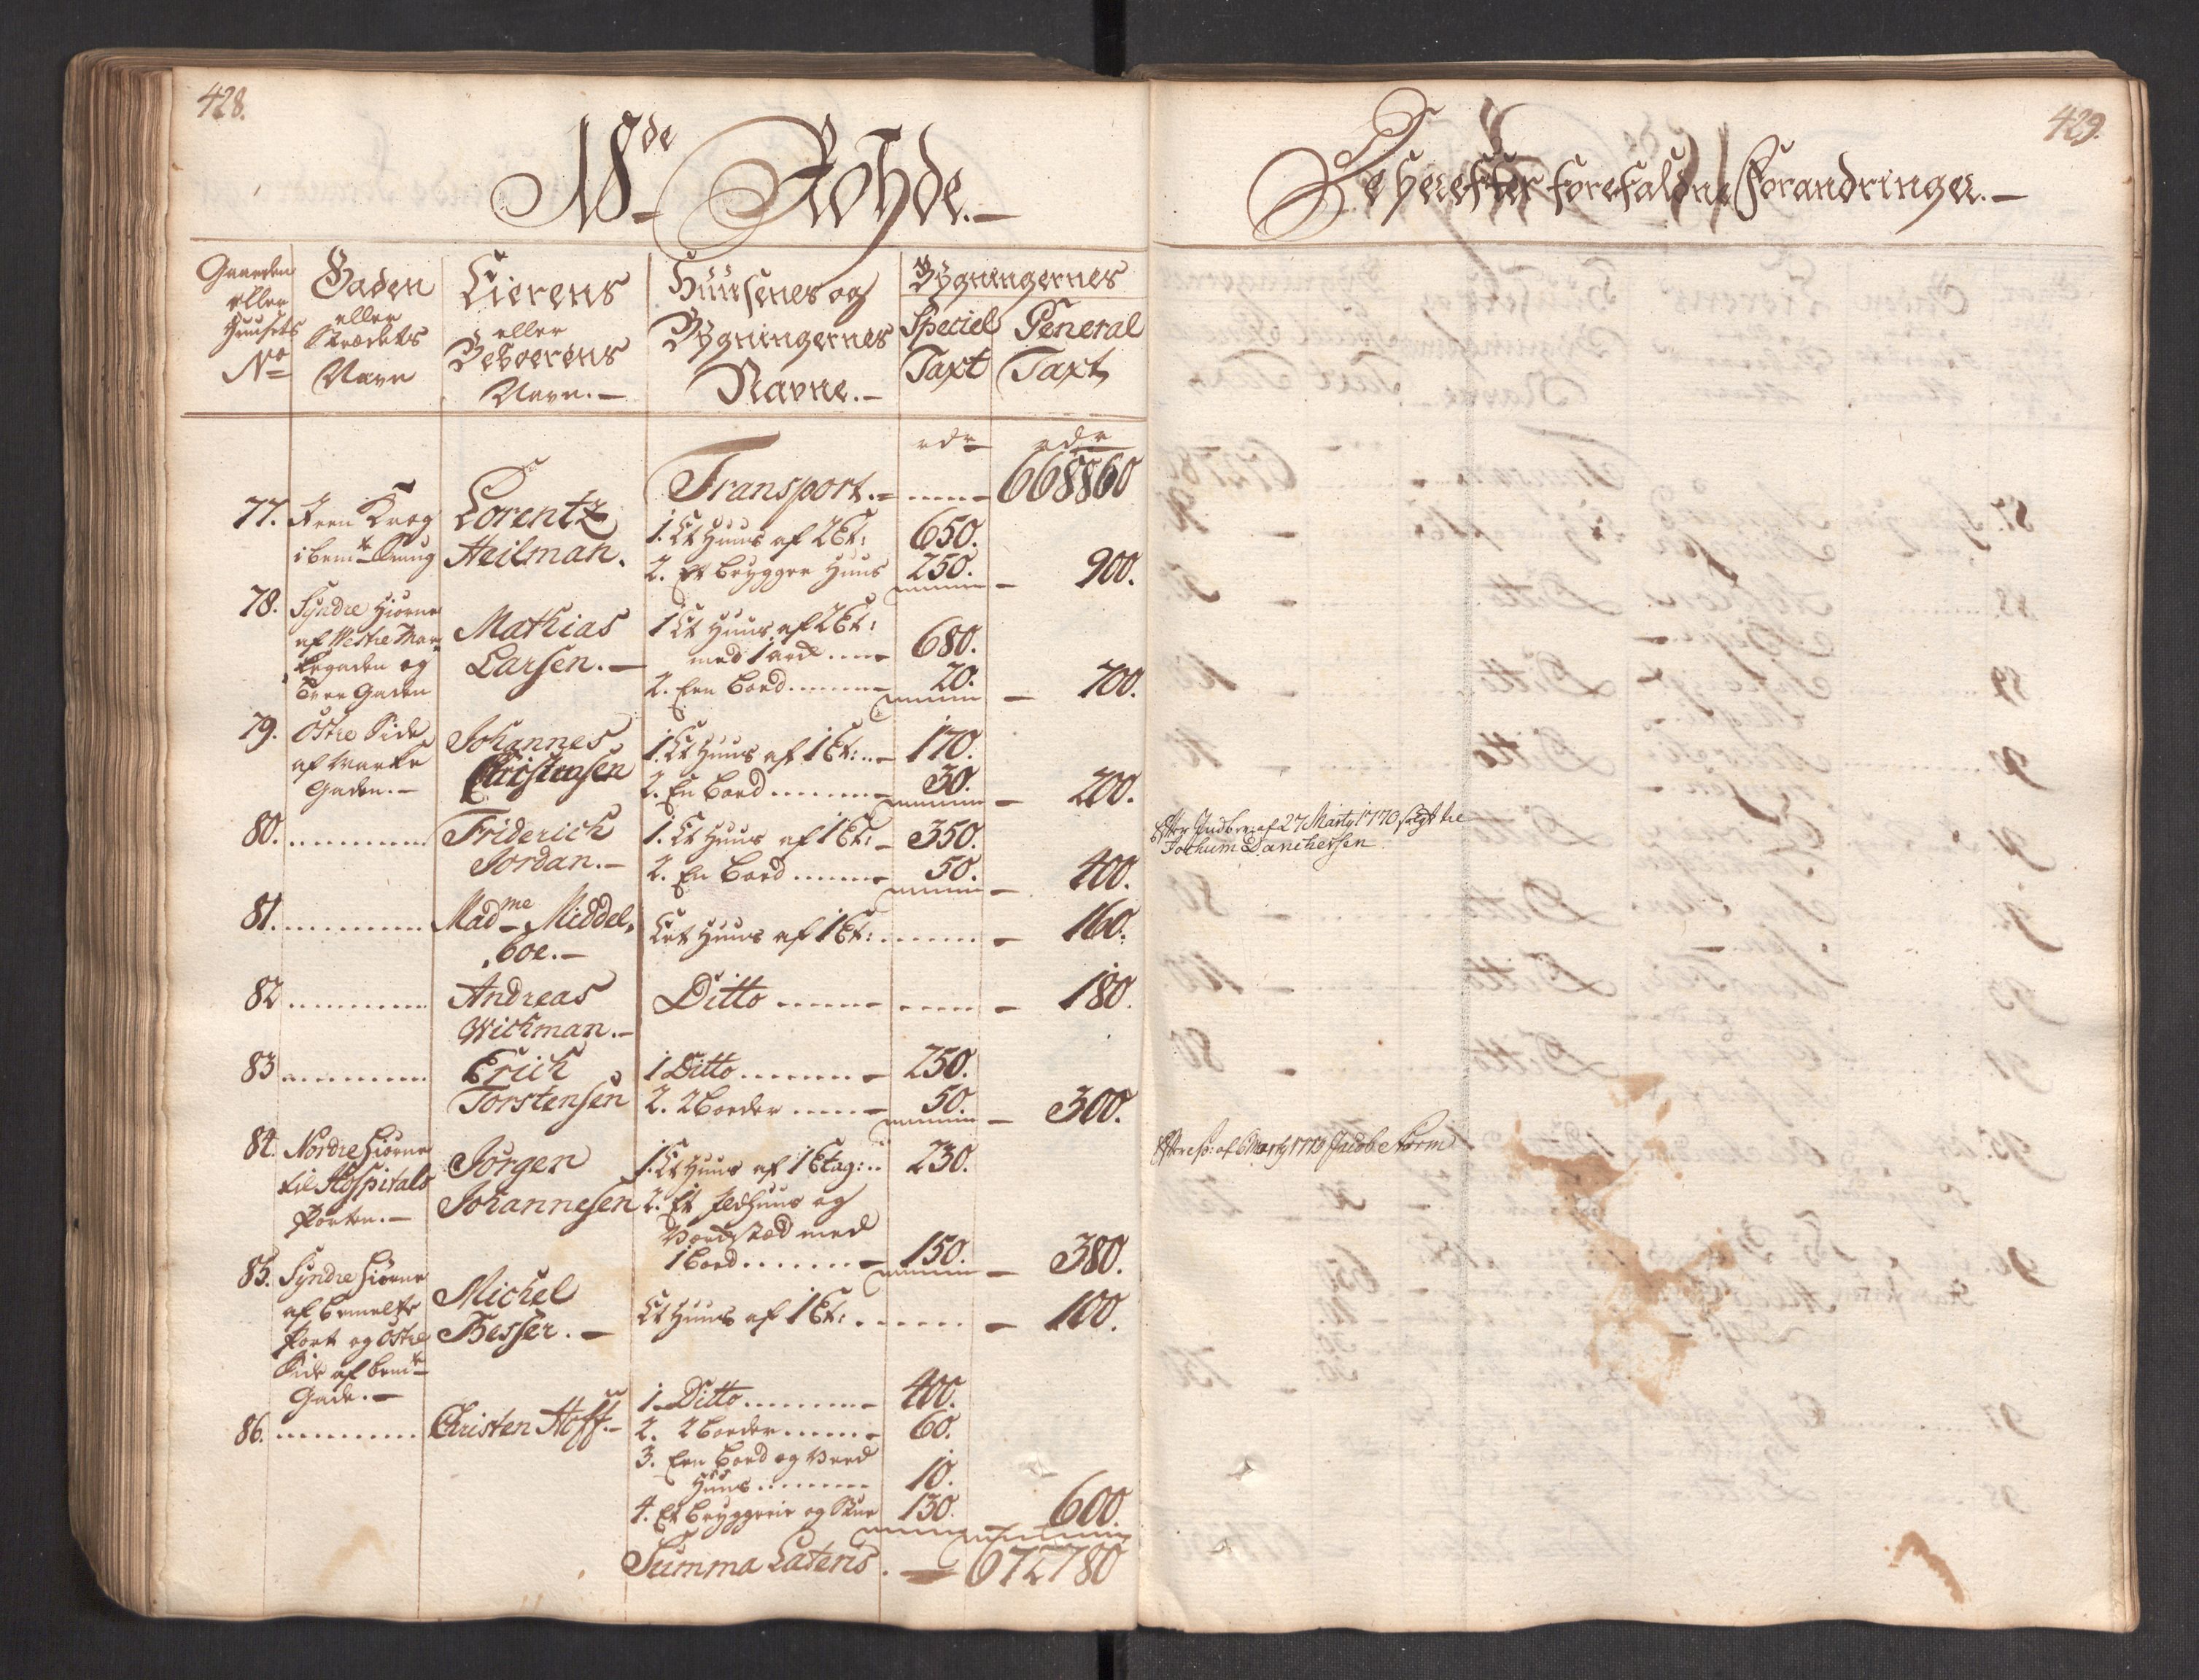 428.
18de Rohde.
Gaarden eller Huusets No
Gaden eller Strædets Navn
Eierens eller Beboerens Navn.
Huusenes og Bygningernes Navne.
Bygningernes
Speciel Taxt
General Taxt
rdr rdr
Transport. 668860
77. Lorentz Heilman.
1. Et Huus af 2 Et: 650.
2. Et Brygger Huus 250. 900.
78. Syndre Hiørne af Westre Marke gaden og Tverr Gaden
Mathias Larsen.
1 Et Huus af 2 Et: med 1 ark 680.
2. Een Boed 20. 700.
79. Østre Side af Marke Gaden.
Johannes Christensen
1. Et Huus af 1 Et: 170.
2. En Boed 30. 200.
80. Friderich Jordan.
1. Et Huus af 1 Et: 350.
2. En Boed 50. 400.
81. Madme Middelboe.
Eet Huus af 1 Et: 160.
82 Andreas Wichman.
Ditto 180.
83 Erich Torstensen
1 Ditto 250.
2. 2 Boeder 50. 300.
84. Nordre Hiørne til Hospitals Porten.
Jörgen Johannesen
1. Et Huus af 1 Etag: 230.
2. Et Ildhuus og
med
1 Boed 150. 380.
85. Syndre Hiørne af bemelte Port og Østre Side af bemte Gade.
Michel Besser.
Et Huus af 1 Et: 100.
86. Christen Hoff.
1. Ditto 400.
2. 2 Boeder 60.
3. Een Boed og
Huus 10.
4. Et Bryggerie og Skur 130. 600.
Summa Lateris. 672780
429.
De herefter forefaldne Forandringer.
Efter af 27 Marty 1770 solgt til
Jochum Danchersen
af Marty 1773 Jacob Storm